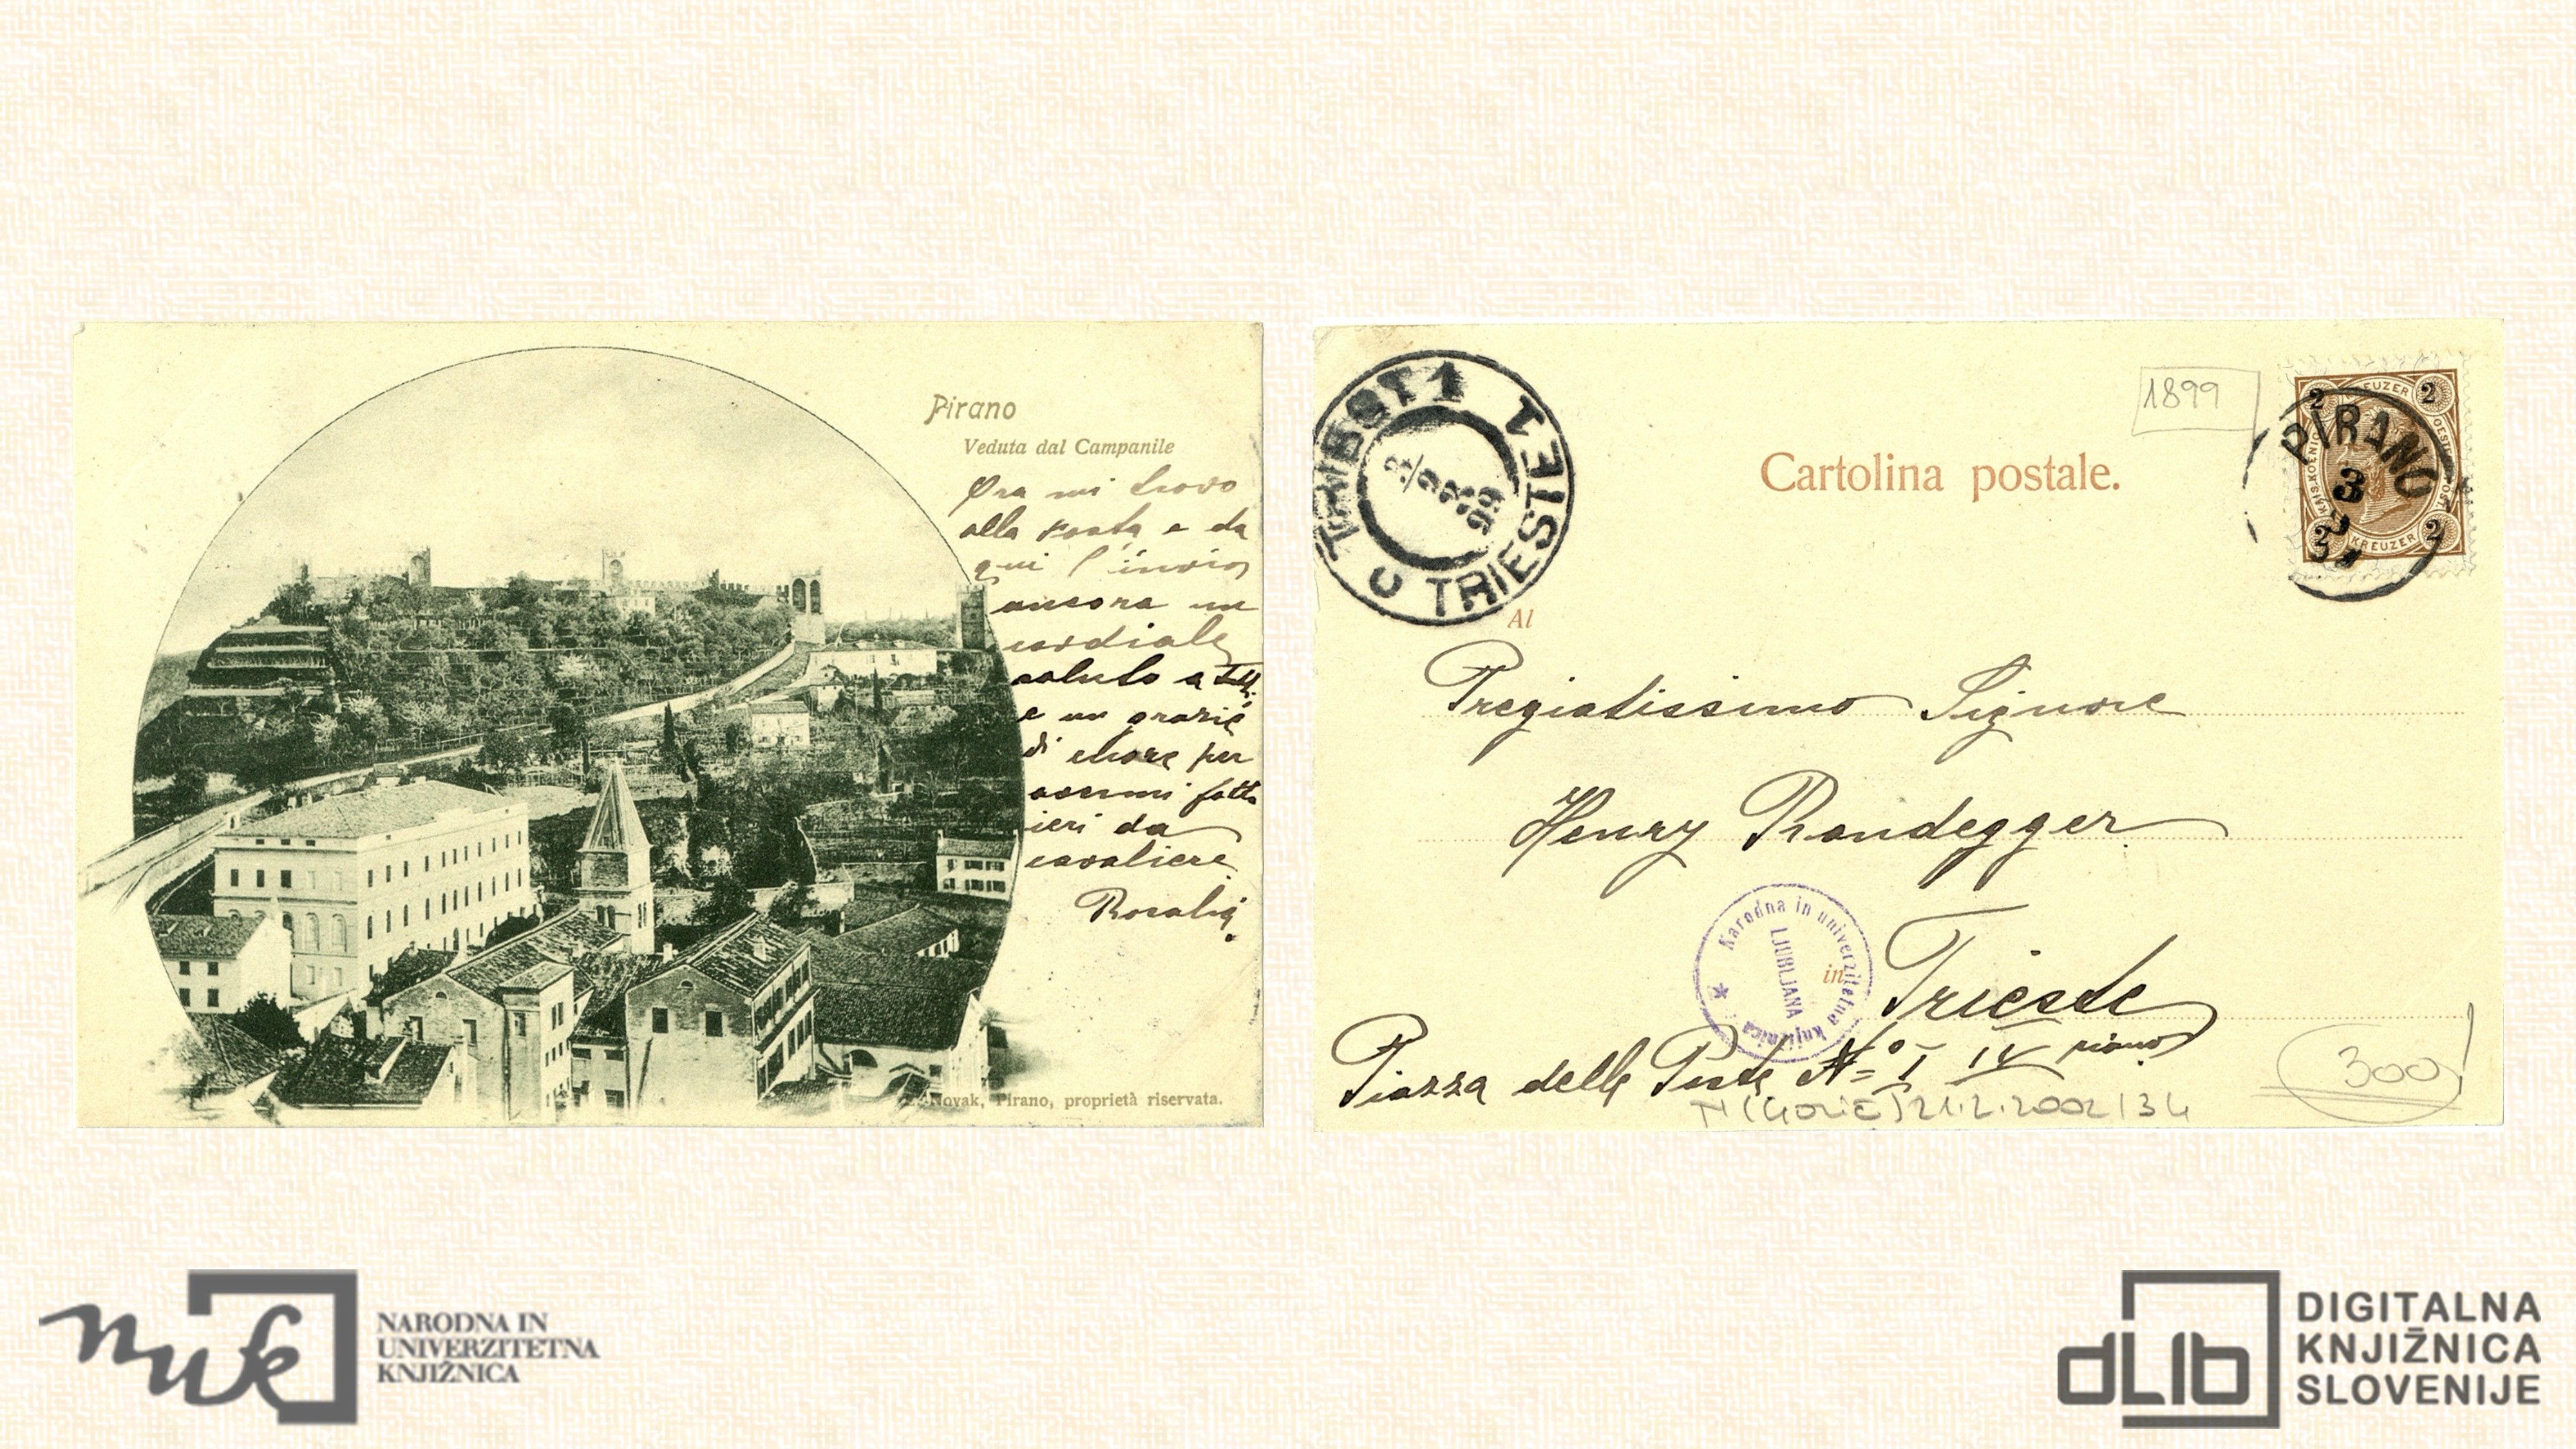 Pirano
Veduta dal Campanile
Ora mi trovo
alla posta e da
qui l'invio
ancora un
cordiale
saluto a tutti
e un grazie
di cuore per
avermi fatto
ieri da
cavaliere
Rosalia
Novak, Pirano, proprietà riservata.
TRIEST 1 TRIESTE 1
C
3/2
99
1899
2 KREUZER 2
KAIS. KOENIGL. OESTERR. POST
2 KREUZER 2
PIRANO
3
2
Cartolina postale.
Al
Pregiatissimo Signore
Henry Randegger
in Trieste
Narodna in univerzitetna knjižnica
LJUBLJANA
Piazza delle Poste No. I IV piano
300
N (GORIČ) 21.2.2002 / 34
nuk
NARODNA IN
UNIVERZITETNA
KNJIŽNICA
dLib
DIGITALNA
KNJIŽNICA
SLOVENIJE